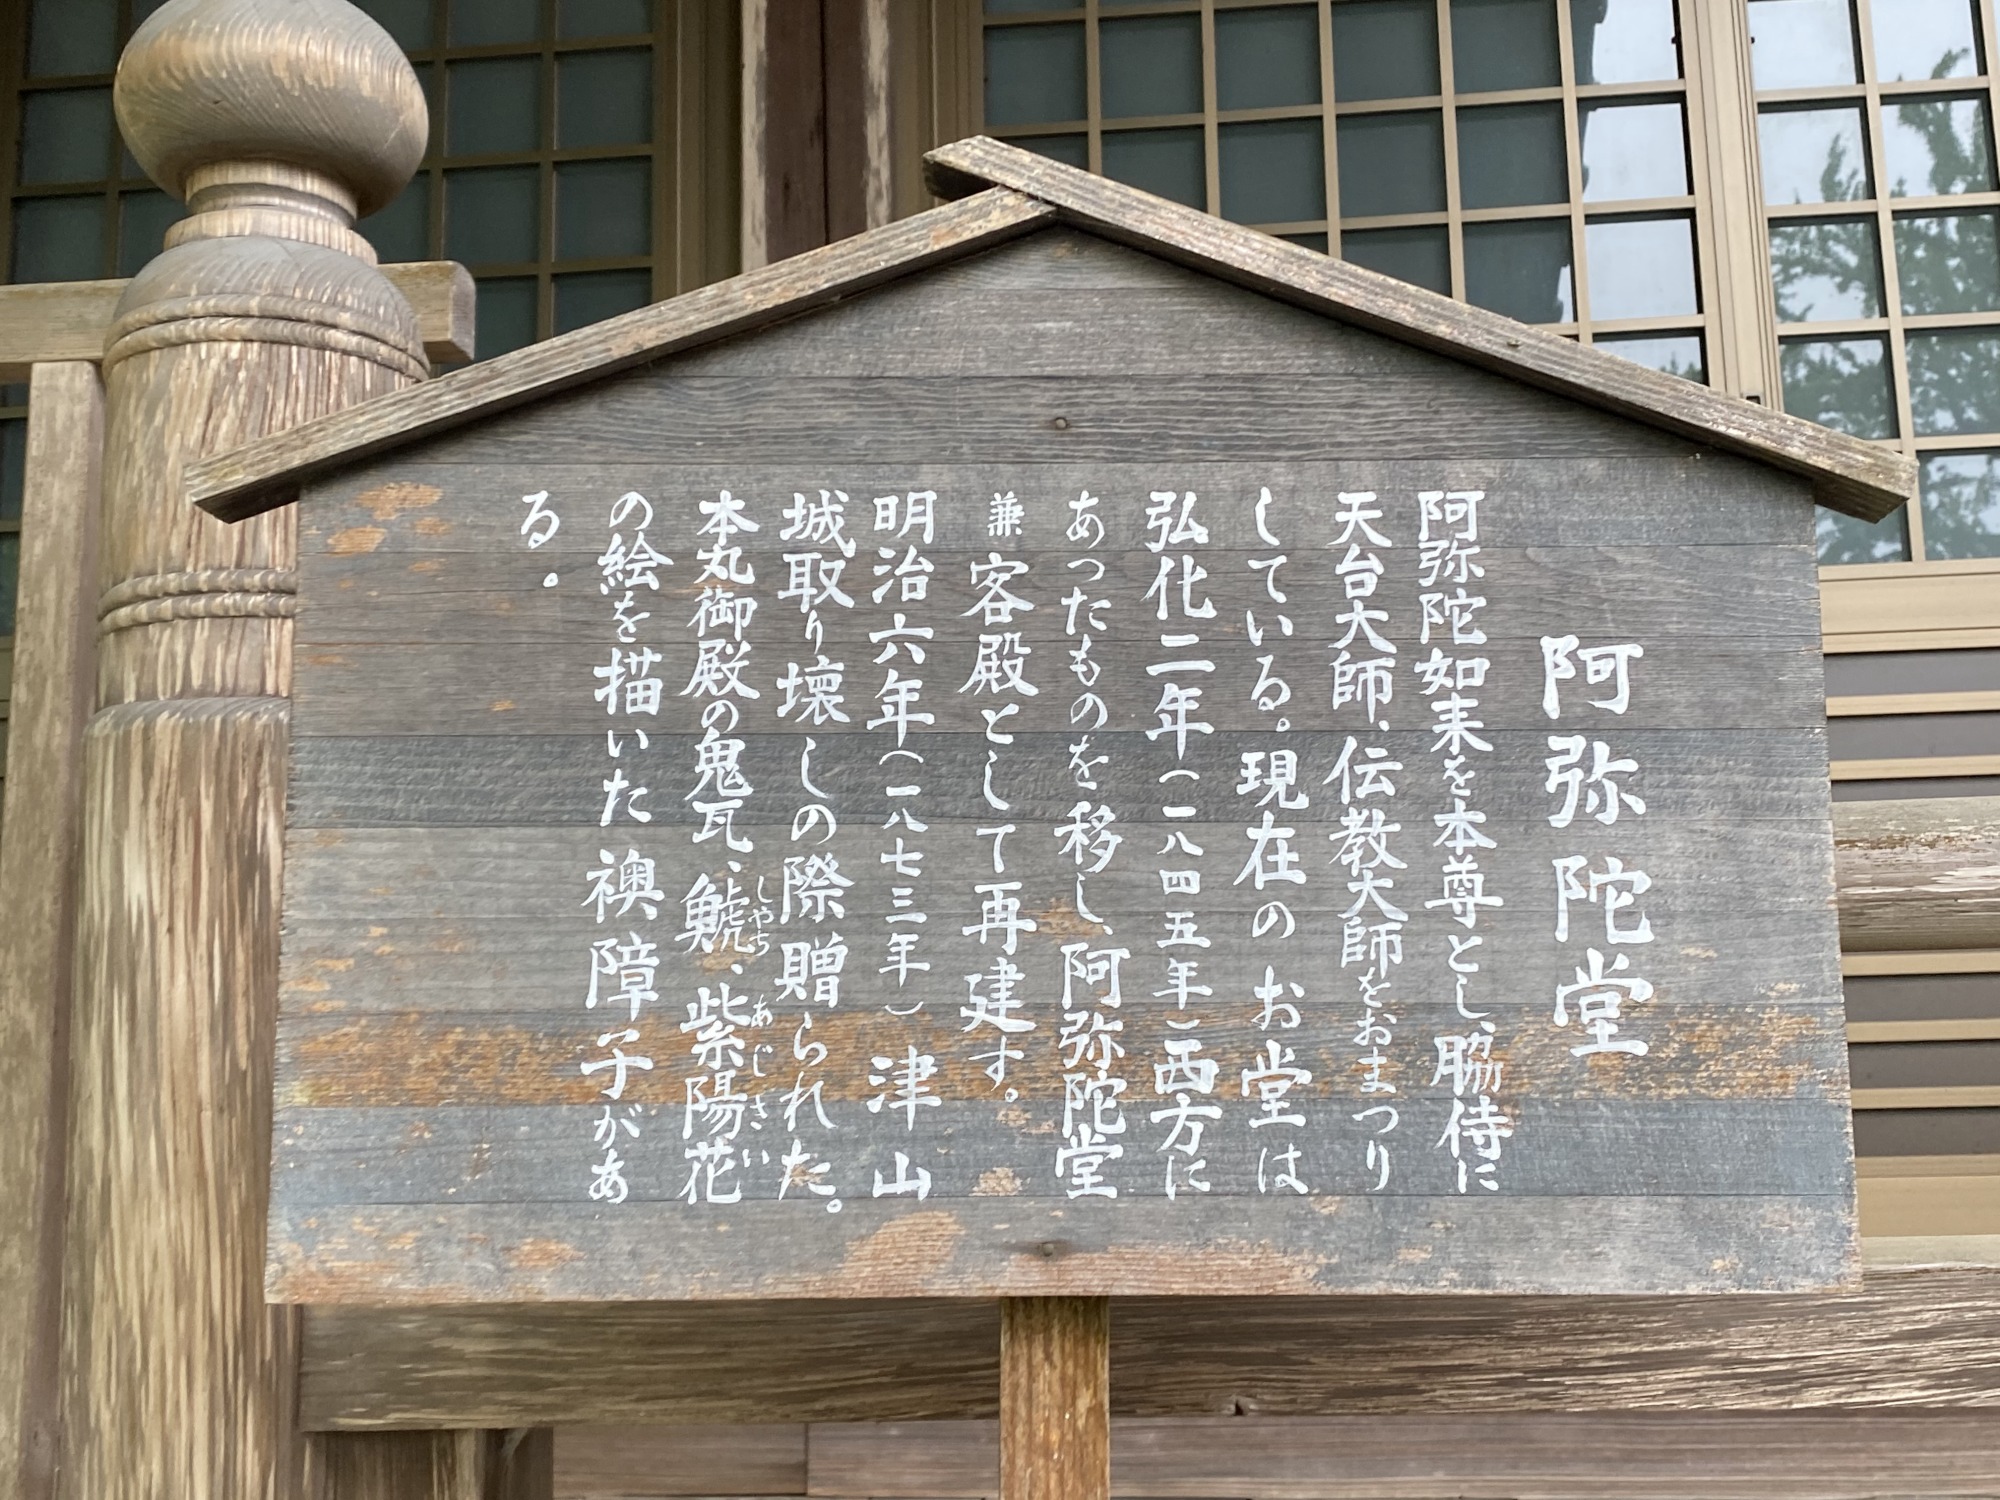 阿弥陀堂
阿弥陀如来を本尊とし、脇侍に
天台大師、伝教大師をおまつり
している。現在のお堂は
弘化二年(一八四五年)西方に
あったものを移し、阿弥陀堂
兼客殿として再建す。
明治六年(一八七三年)津山
城取り壊しの際贈られた。
本丸御殿の鬼瓦、鯱、紫陽花
しゃち
あじさい
の絵を描いた襖障子があ
る。